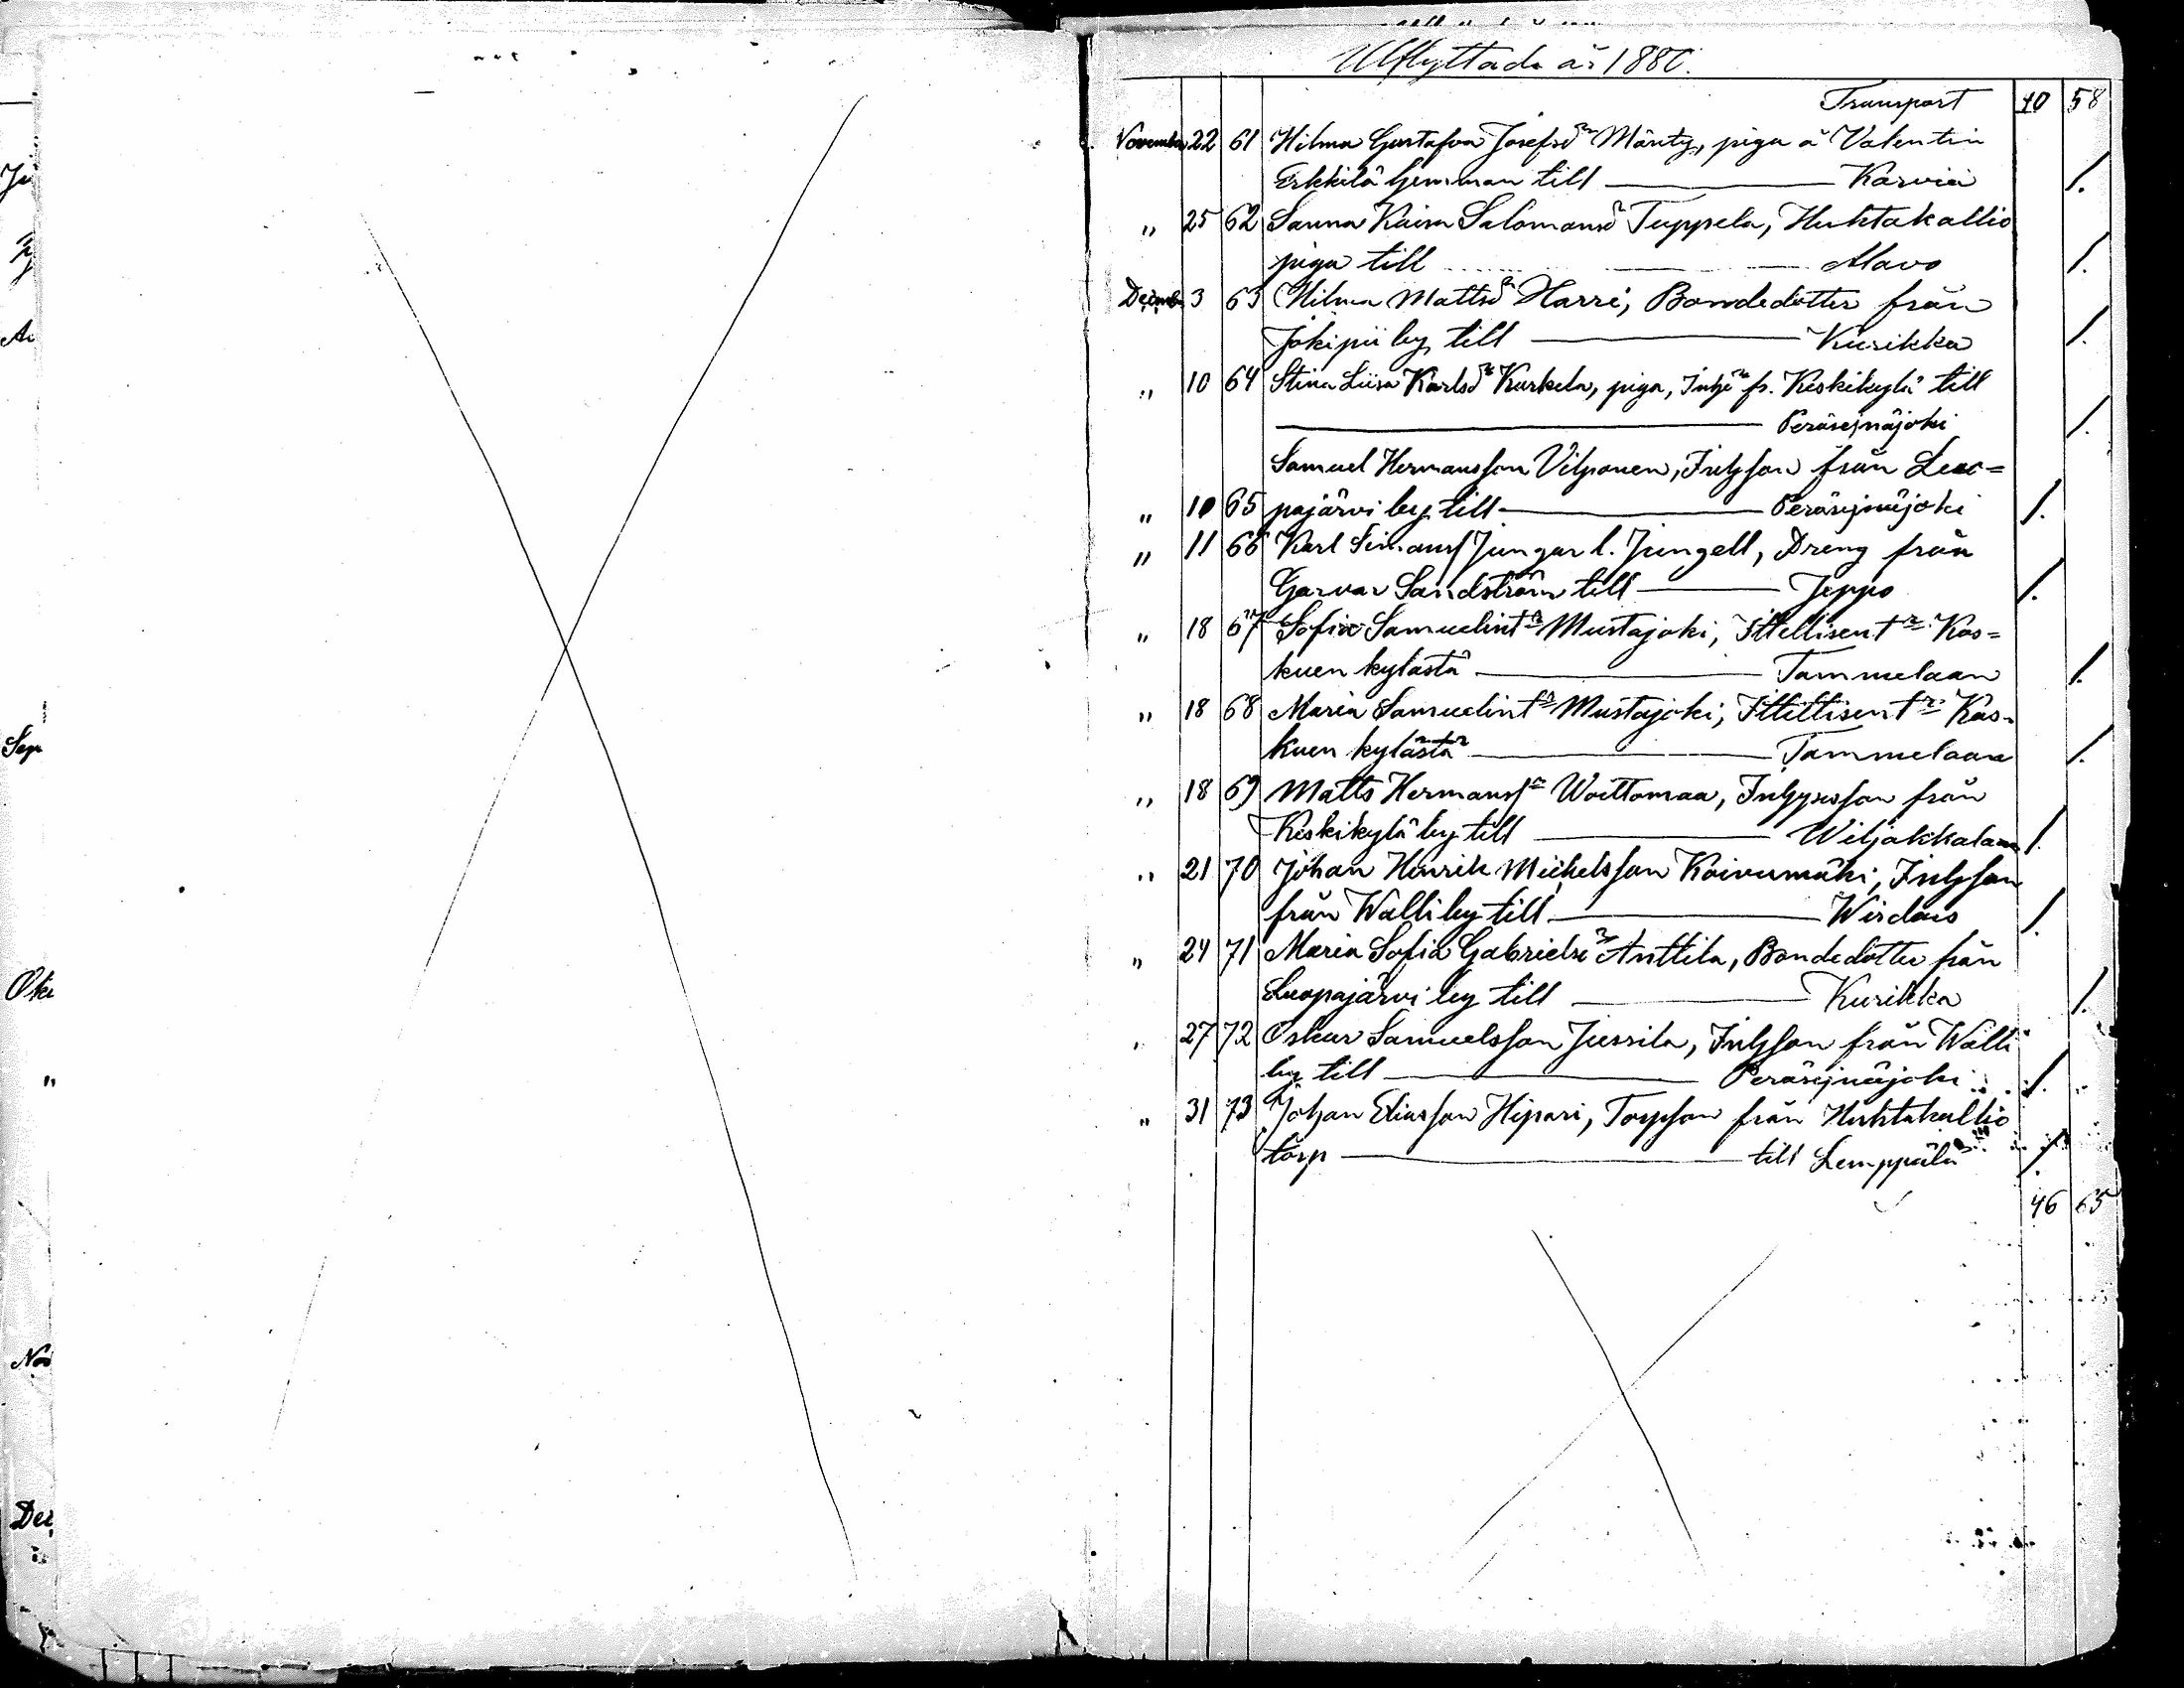 Utflyttade år 1880.
Transport 40 58
November 22 61 Hilma Gustafva Josefsd:r Mänty, piga å Valentin
Erkkilä hemman till — Karvia 1.
" 25 62 Sanna Kaisa Salomonsd:r Tuppela, Huhtakallio
piga till — Alavo 1.
Decemb. 3 63 Hilma Mattsd:r Harri, Bondedotter från
Jokipii by till — Kurikka 1.
" 10 64 Stina Liisa Karlsd:r Kurkela, piga, fr. Keskikylä till
— Peräsejnäjoki 1.
Samuel Hermansson Vilponen, Inhsson från Luo=
" 10 65 pajärvi by till — Peräsejnäjoki 1.
" 11 66 Karl Simonss Jungar l. Jungell, Dreng från
Garvar Sandström till — Jeppo 1.
" 18 67 Sofia Samuelint:r Mustajoki, Itellisent:r Kos=
kuen kylästä — Tammelaan 1.
" 18 68 Maria Samuelint:r Mustajoki, Itellisent:r Kos=
kuen kylästä — Tammelaan 1.
" 18 69 Matts Hermanss:n Woittomaa, Inhysesson från
Keskikylä by till — Wiljakkalaan 1.
" 21 70 Johan Henrik Michelsson Koivumäki, Inhsson
från Walli by till — Wirdois 1.
" 24 71 Maria Sofia Gabrielsd:r Anttila, Bondedotter från
Luopajärvi by till — Kurikka 1.
" 27 72 Oskar Samuelsson Jussila, Inhsson från Walli
by till — Peräsejnäjoki 1.
" 31 73 Johan Eliasson Hipari, Torpson från Huhtakallio
torp — till Lemppälä 1.
46 65
Sep
Okt
"
Nov
Dec